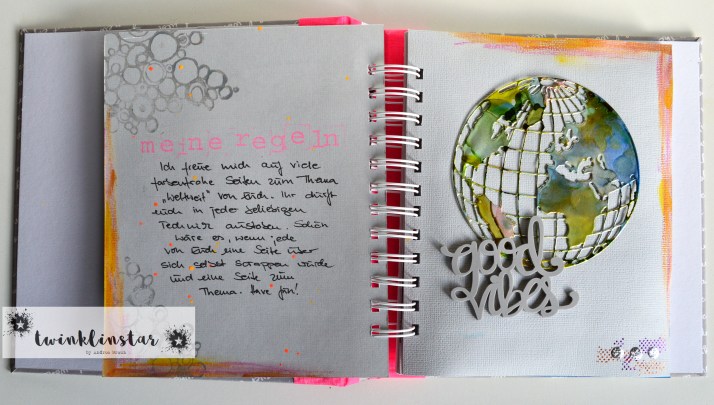 meine regeln
Ich freue mich auf viele
farbenfrohe Seiten zum Thema
„Weltweit" von Euch. Ihr dürft
euch in jeder beliebigen
Technik austoben. Schön
wäre es, wenn jede
von Euch eine Seite über
sich selbst scrappen würde
und eine Seite zum
Thema. Have fun!
good
vibes
twinklinstar
by Andrea